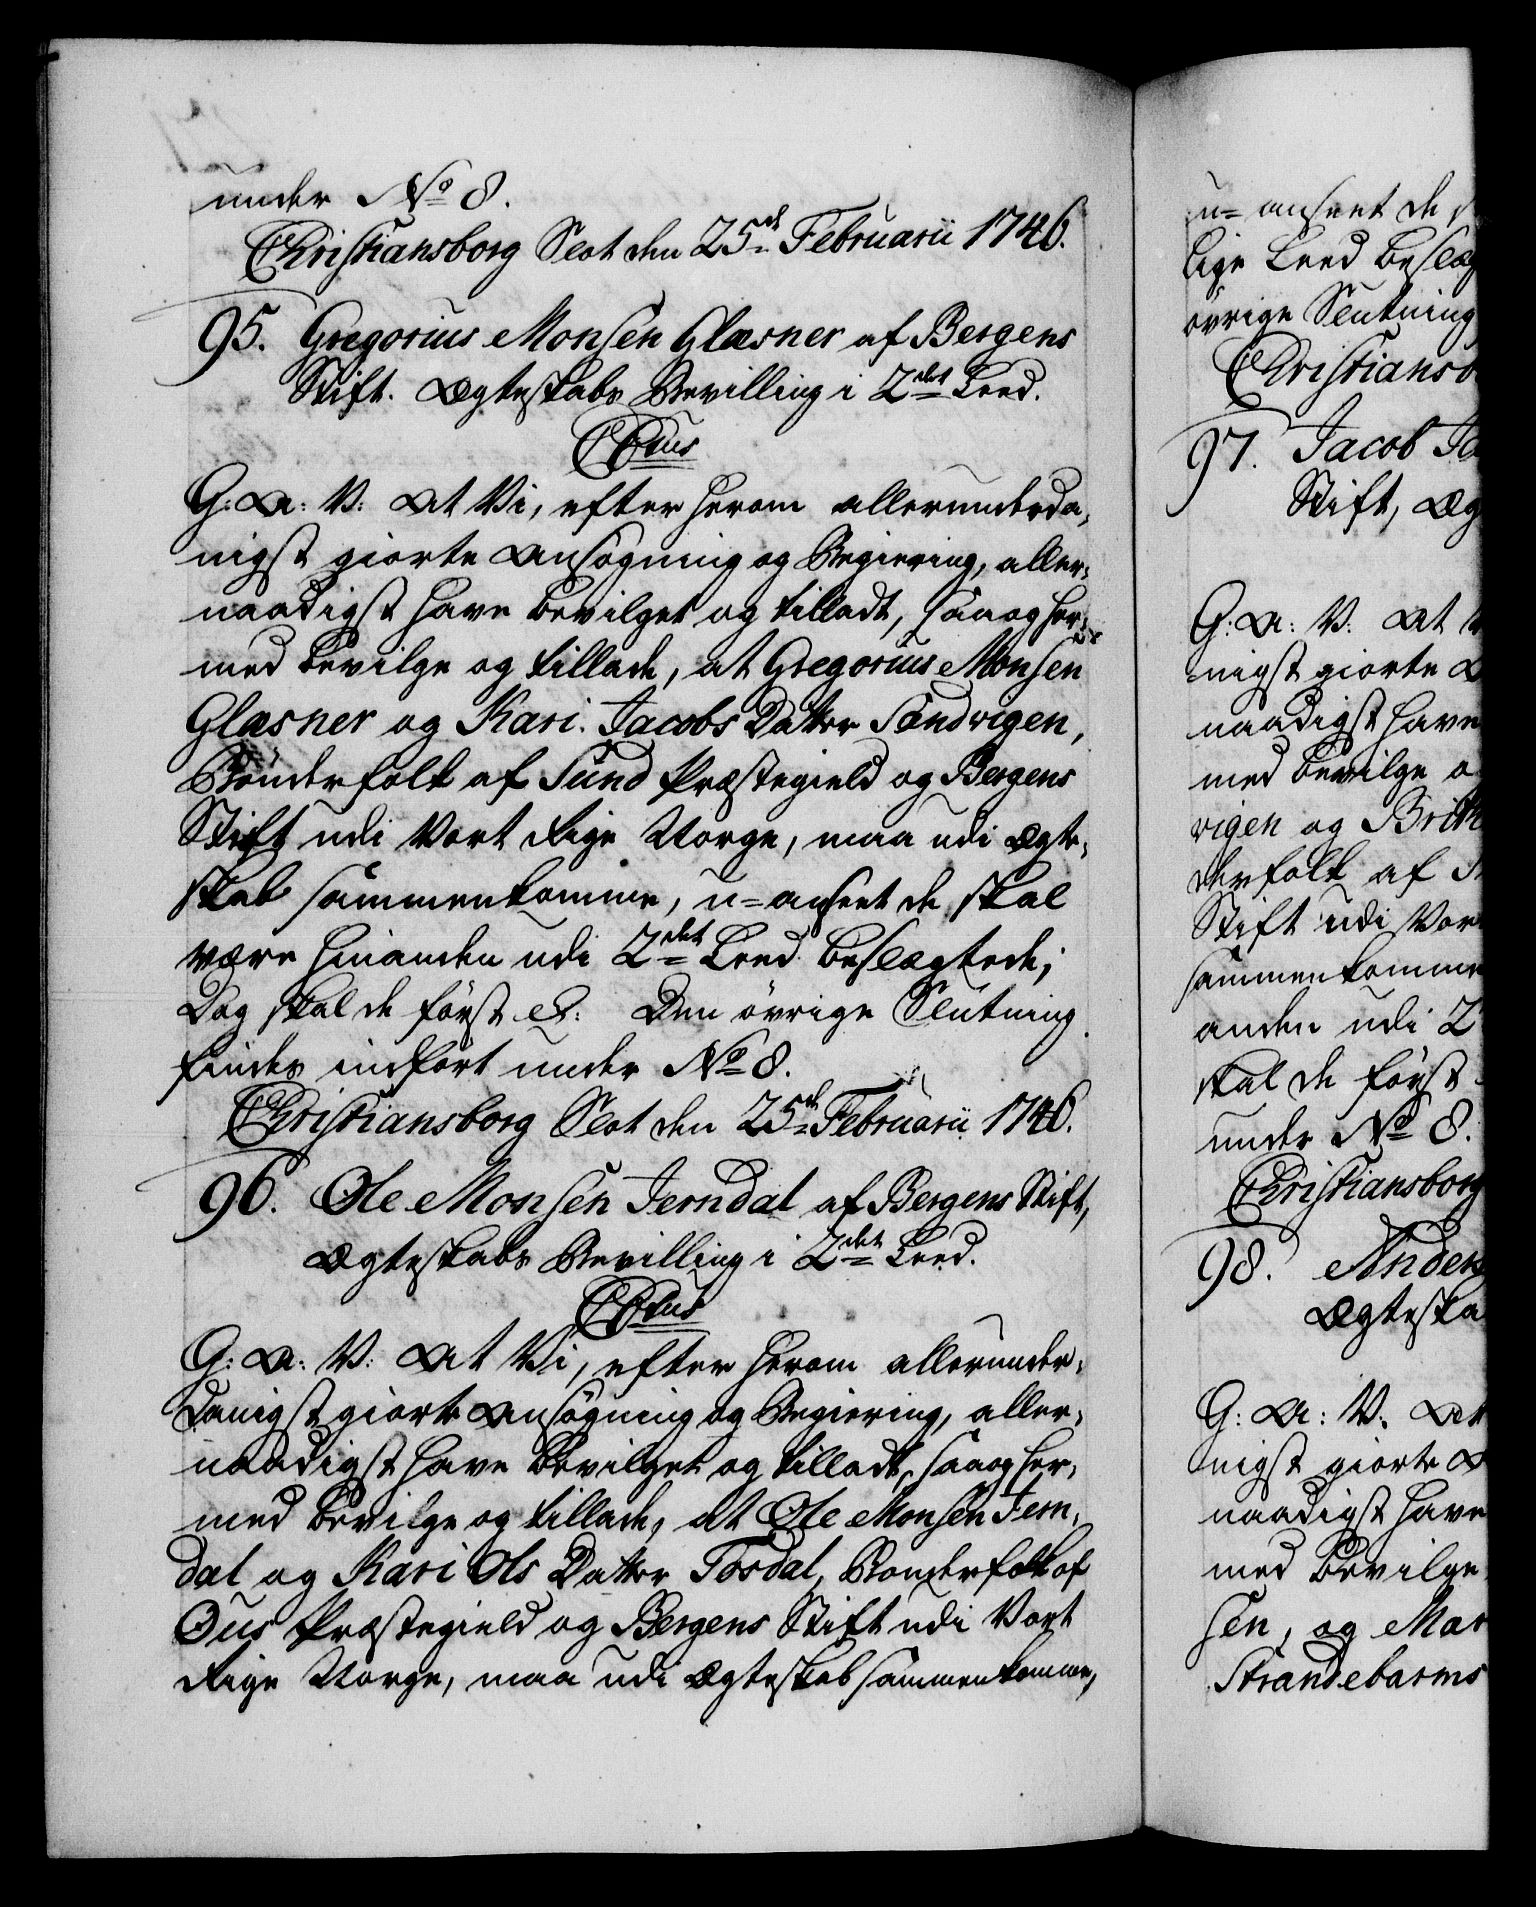 under No 8.
Christiansborg Slot den 25de Februarii 1746.
95. Gregorius Monsen Glæsner af Bergens
Stift. Ægteskabs Bevilling i 2det Leed.
CCtus
G: A: V: At Vi, efter herom allerunderda,
nigst giorte Ansøgning og Begiering, aller,
naadigst have bevilget og tilladt, saa og her,
med bevilge og tillade, at Gregorius Monsen
Glæsner og Kari Jacobs Datter Sandvigen,
Bönderfolk af Sund Præstegield og Bergens
Stift udi Vort Rige Norge, maa udi Ægte,
skab sammenkomme, u=anseet de skal
være hinanden udi 2det Leed beslægtede;
Dog skal de först &. Den övrige Slutning
findes indfört under No 8.
Christiansborg Slot den 25de Februarii 1746.
96. Ole Monsen Jerndal af Bergens Stift,
Ægteskabs Bevilling i 2det Leed.
CCtus
G: A: V: At Vi, efter herom allerunder,
danigst giorte Ansögning og Begiering, aller,
naadigst have bevilget og tilladt, saa og her,
med bevilge og tillade, at Ole Monsen Jern,
dal og Kari Ols Datter Tosdal, Bönderfolk af
Ous Præstegield og Bergens Stift udi Vort
Rige Norge, maa udi Ægteskab sammenkomme,
u= anseet de
lige Leed beslæg
övrige Slutning
Christiansb
97. Jacob Ja
Stift, Æg
G: A: V: At V
nigst giorte A
naadigst have
med bevilge o
vigen og Brith
derfolk af S
Stift udi Vor
sammenkomme
anden udi 2
skal de först
under No 8.
Christiansborg
98. Anders
Ægteska
G: A: V: At
nigst giorte A
naadigst have
med bevilge
sen, og Mar
Strandebarms